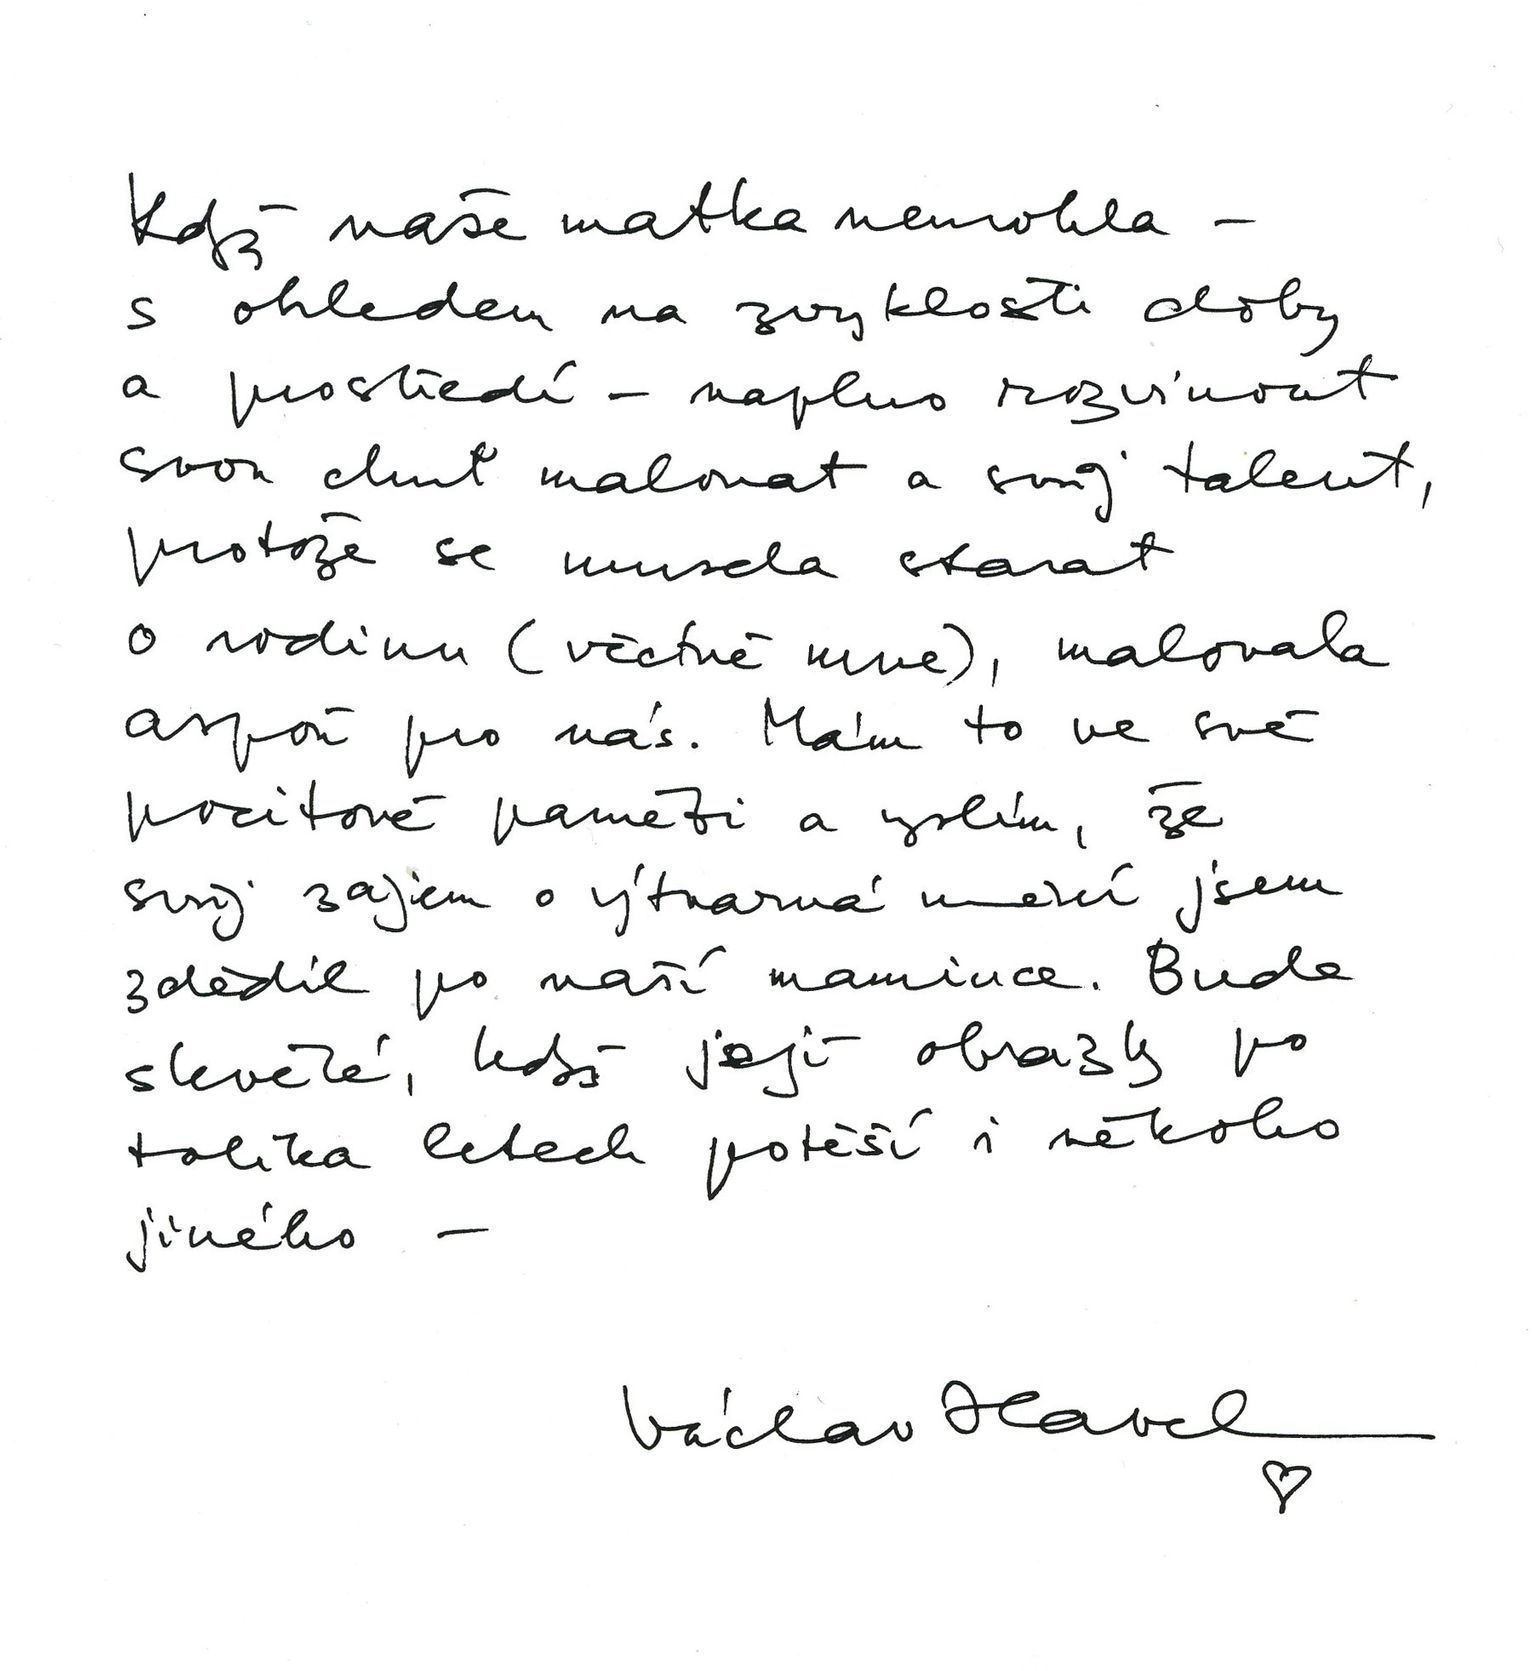 Když naše matka nemohla –
s ohledem na zvyklosti doby
a prostředí – naplno rozvinout
svou chuť malovat a svůj talent,
protože se musela starat
o rodinu (včetně mne), malovala
aspoň pro nás. Mám to ve své
pocitové paměti a myslím, že
svůj zájem o výtvarná umění jsem
zdědil po naší mamince. Bude
skvělé, když její obrazky po
tolika letech potěší i někoho
jiného –
Václav Havel